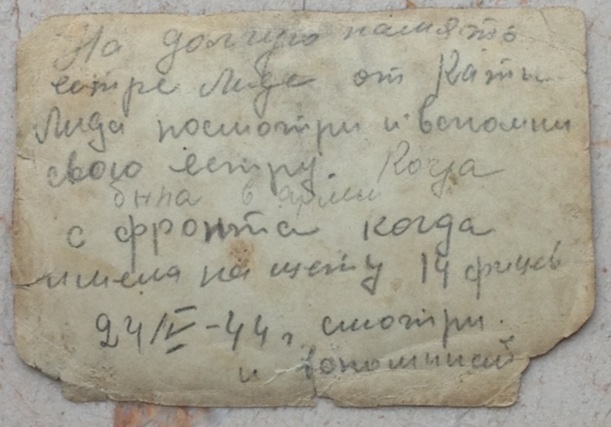 На долгую память
сестре Лиде от Кати
Лида посмотри и вспомни
свою сестру. Когда
была в армии
с фронта когда
имела на щету 14 фрицев
24/V-44 г. смотри.
и вспоминай